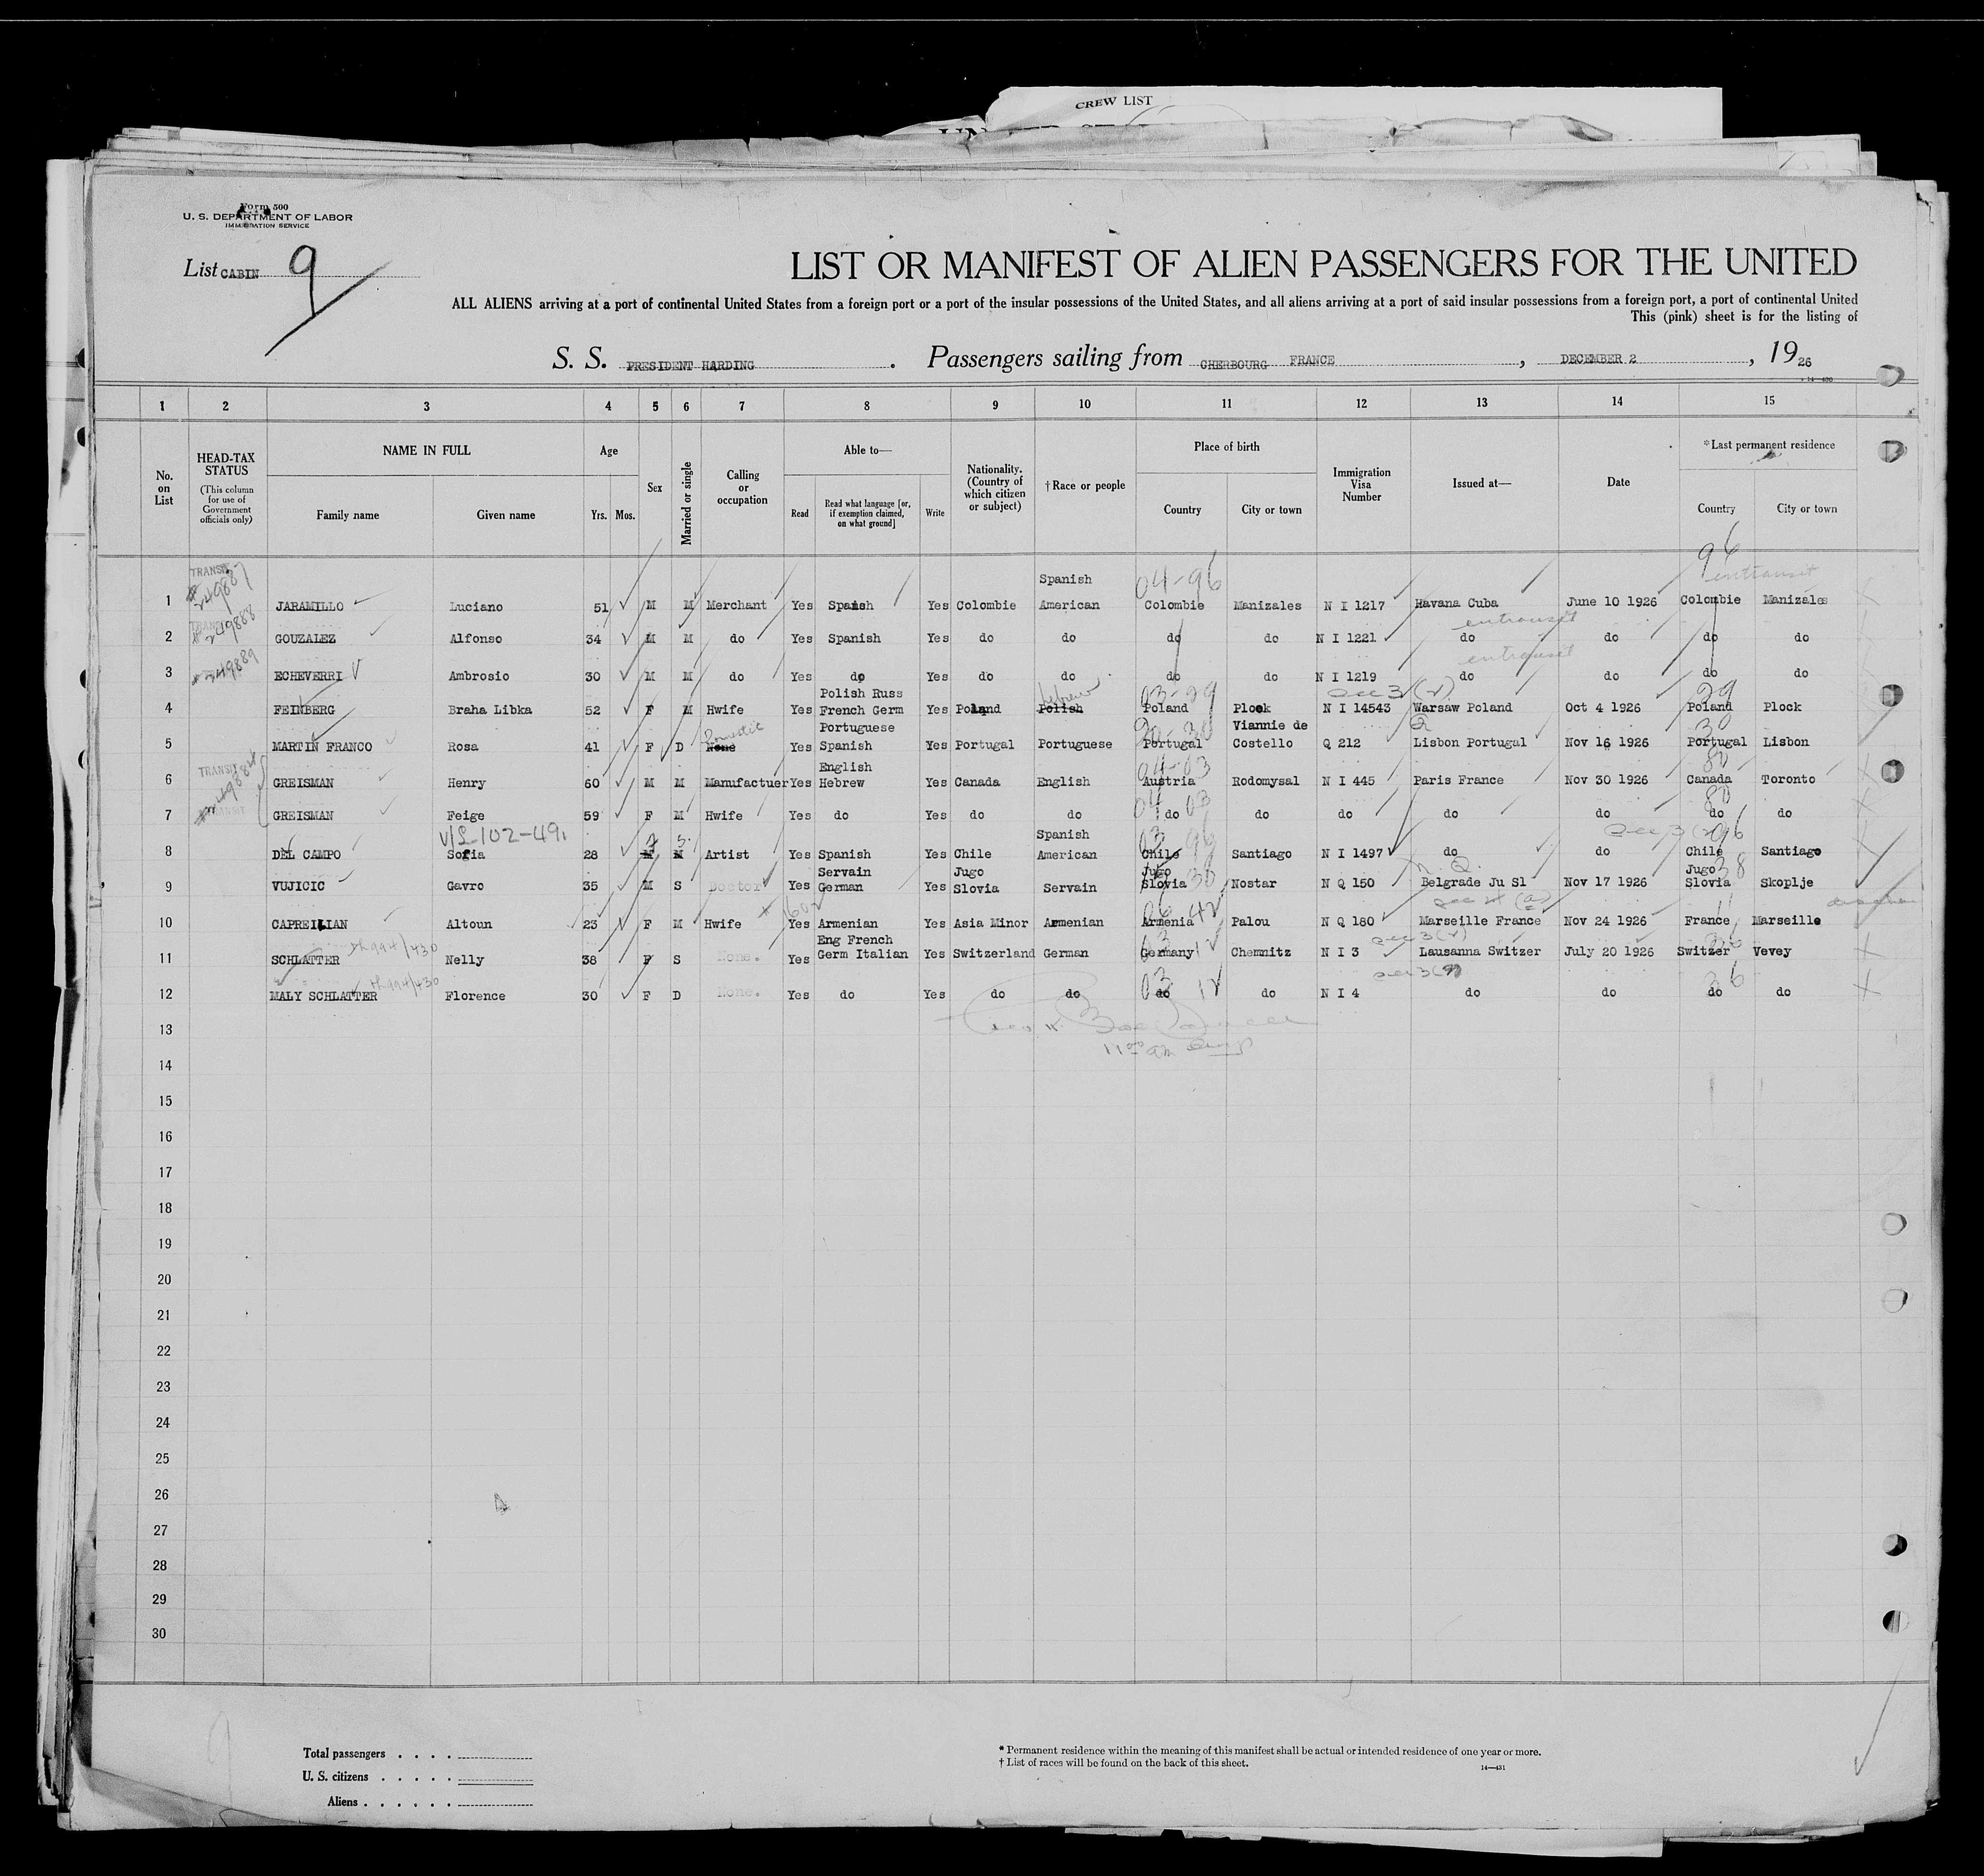 CREW LIST
Form 500
U. S. DEPARTMENT OF LABOR
IMMIGRATION SERVICE
List CABIN 9
LIST OR MANIFEST OF ALIEN PASSENGERS FOR THE UNITED
ALL ALIENS arriving at a port of continental United States from a foreign port or a port of the insular possessions of the United States, and all aliens arriving at a port of said insular possessions from a foreign port, a port of continental United
This (pink) sheet is for the listing of
S. S. PRESIDENT HARDING . Passengers sailing from CHERBOURG FRANCE , DECEMBER 2 , 19 26
14—430
1 2 3 4 5 6 7 8 9 10 11 12 13 14 15
No. on List
HEAD-TAX STATUS (This column for use of Government officials only)
NAME IN FULL Family name Given name
Age Yrs. Mos.
Sex
Married or single
Calling or occupation
Able to— Read Read what language [or, if exemption claimed, on what ground] Write
Nationality. (Country of which citizen or subject)
†Race or people
Place of birth Country City or town
Immigration Visa Number
Issued at—
Date
*Last permanent residence Country City or town
96
TRANSIT Spanish 04-96 entransit
249887
1 JARAMILLO Luciano 51 M M Merchant Yes Spanish Yes Colombie American Colombie Manizales N I 1217 Havana Cuba June 10 1926 Colombie Manizales
249888 entransit
2 GOUZALEZ Alfonso 34 M M do Yes Spanish Yes do do do do N I 1221 do do do do
249889 entransit
3 ECHEVERRI Ambrosio 30 M M do Yes do Yes do do do do N I 1219 do do do do
Polish Russ Hebrew 03-29 sec 3 (2) 29
4 FEINBERG Braha Libka 52 F M Hwife Yes French Germ Yes Poland Polish Poland Plock N I 14543 Warsaw Poland Oct 4 1926 Poland Plock
Domestic Portuguese Viannie de Q 30
5 MARTIN FRANCO Rosa 41 F D None Yes Spanish Yes Portugal Portuguese Portugal Costello Q 212 Lisbon Portugal Nov 16 1926 Portugal Lisbon
TRANSIT English 04-03 80
6 GREISMAN Henry 60 M M Manufactuer Yes Hebrew Yes Canada English Austria Rodomysal N I 445 Paris France Nov 30 1926 Canada Toronto
TRANSIT 04 03 80
7 GREISMAN Feige 59 F M Hwife Yes do Yes do do do do do do do do do
V/L 102-491 F S Spanish 03 96 sec 3 (2) 96
8 DEL CAMPO Sofia 28 M M Artist Yes Spanish Yes Chile American Chile Santiago N I 1497 do do Chile Santiago
Servain Jugo Jugo N. Q. Jugo 38
9 VUJICIC Gavro 35 M S Doctor Yes German Yes Slovia Servain Slovia Nostar N Q 150 Belgrade Ju Sl Nov 17 1926 Slovia Skoplje
10 CAPREILIAN Altoun 23 F M Hwife Yes Armenian Yes Asia Minor Armenian Armenia Palou N Q 180 Marseille France Nov 24 1926 France Marseille
Eng French 03 12 sec 3 (2)
11 SCHLATTER Nelly 38 F S None. Yes Germ Italian Yes Switzerland German Germany Chemnitz N I 3 Lausanna Switzer July 20 1926 Switzer Vevey
03 12 sec 3 (2) 36
12 MALY SCHLATTER Florence 30 F D None. Yes do Yes do do do do N I 4 do do do do
13
14
15
16
17
18
19
20
21
22
23
24
25
26
27
28
29
30
Total passengers . . . .
U. S. citizens . . . . .
Aliens . . . . . .
* Permanent residence within the meaning of this manifest shall be actual or intended residence of one year or more.
† List of races will be found on the back of this sheet.
14—431